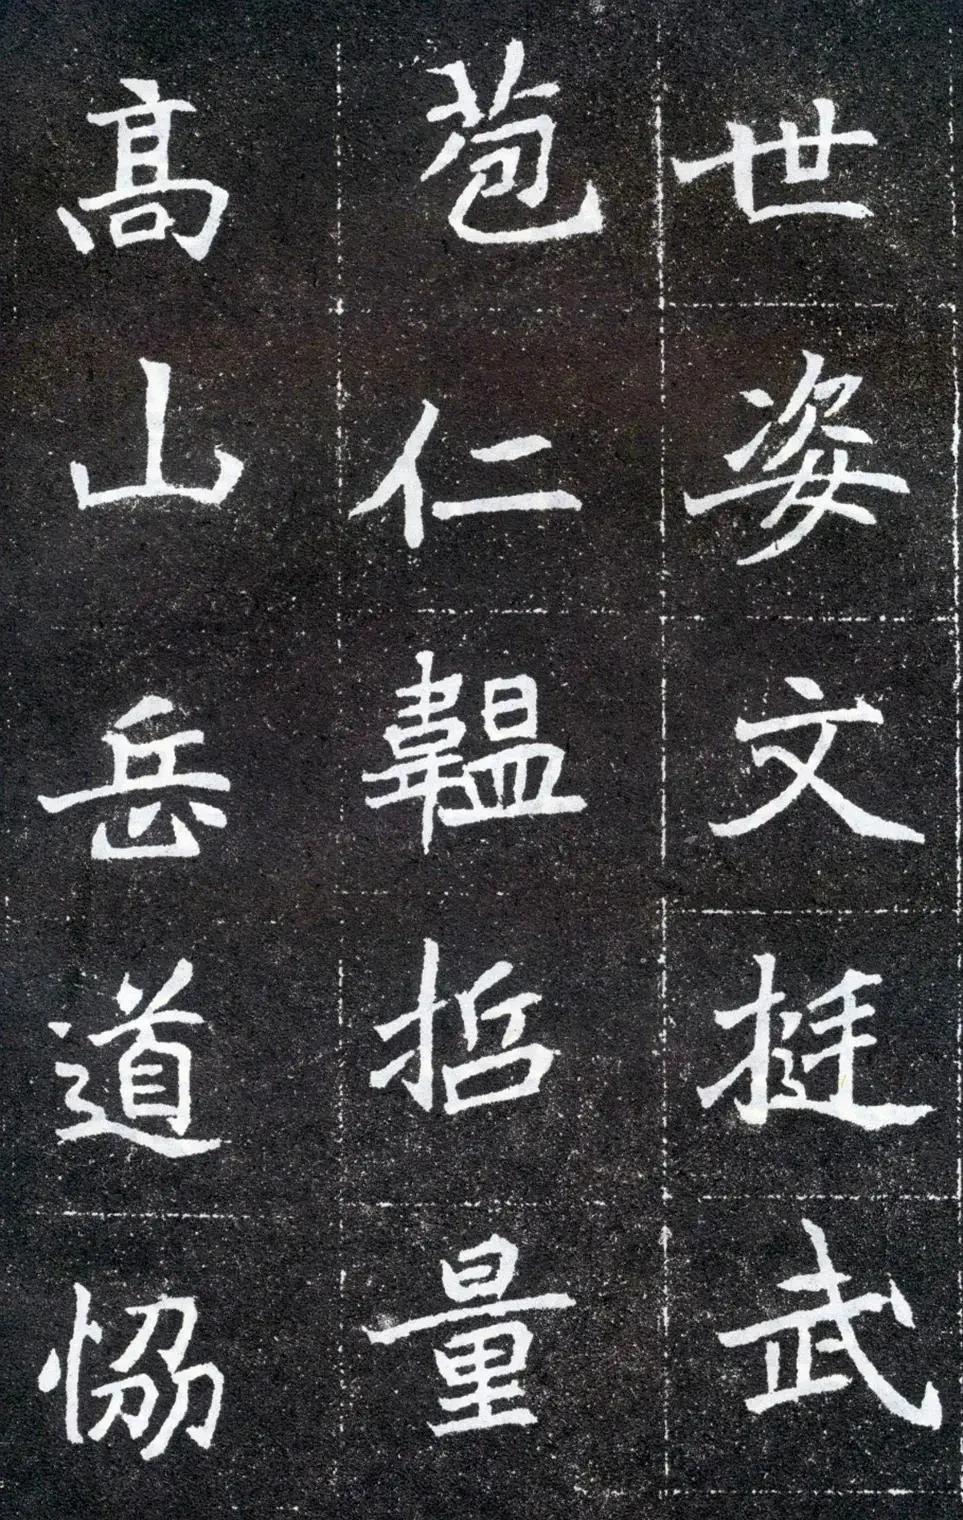 世姿文挺武
苞仁韞哲量
高山岳道協